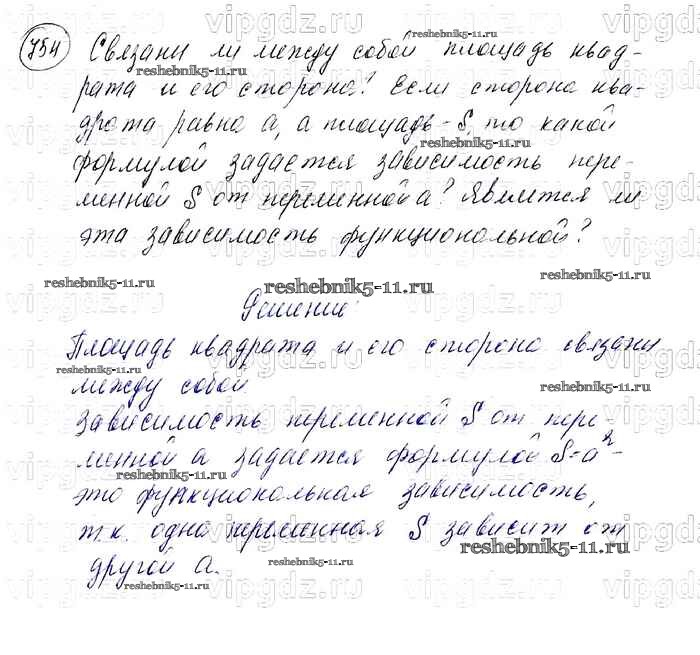 754 Связаны ли между собой площадь квад-
рата и его сторона? Если сторона ква-
драта равна a, а площадь - S, то какой
формулой задается зависимость пере-
менной S от переменной a? Является ли
эта зависимость функциональной?
Решение:
Площадь квадрата и его сторона связаны
между собой.
Зависимость переменной S от пере-
менной a задается формулой S=a² -
это функциональная зависимость,
т.к. одна переменная S зависит от
другой a.
reshebnik5-11.ru
vipgdz.ru